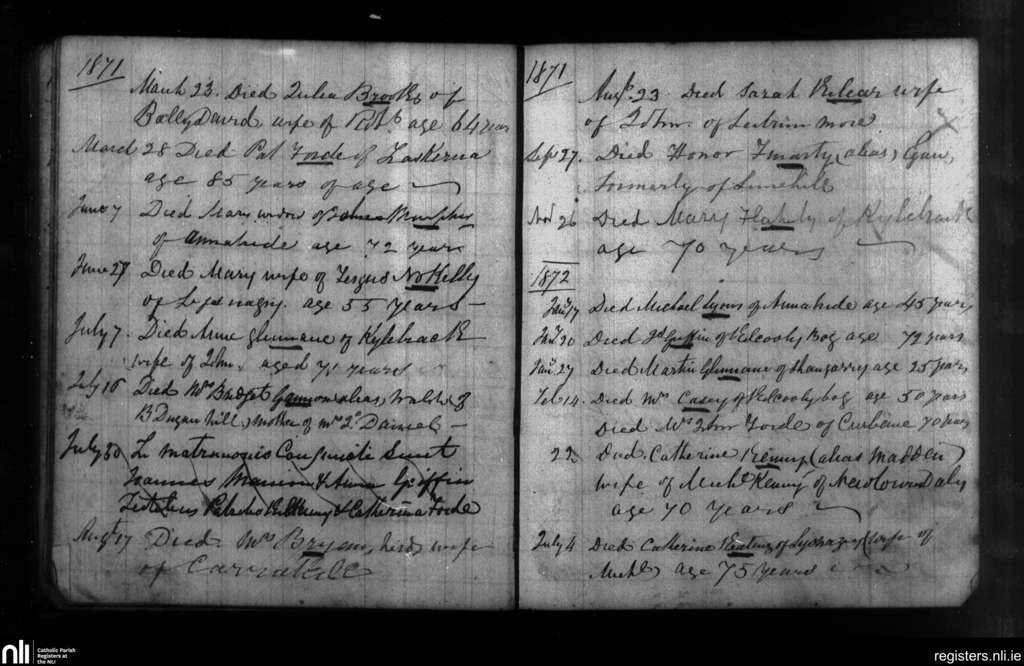 1871
March 23. Died Julia Brooks of
Bally David wife of Robt. age 64 year
March 28 Died Pat Forde of
age 85 years of age
June 7 Died Mary widow of James Murphy
of Annahide age 72 years
June 27 Died Mary wife of Fergus McKelly
of age 55 years
July 7. Died Anne Glennane of Kylebrack
wife of John. aged 71 years
July 16 Died Mrs Bridget Gannon alias, Walsh of
B Dugan hill, mother of Mrs Daniel
July 30 In matrimonio Conjuncti Sunt
Joannes Mannion & Anna Griffin
Testibus Kenny & Catherina Forde
Augt 17 Died. Mrs Bryan, wife
of
1871
Augt. 23. Died Sarah Kilcar wife
of John. of Leitrim more
Sept 27. Died Honor Finarty (alias) Egan,
formerly of Limehill
Nov 26 Died Mary Flahily of Kylebrack
age 70 years
1872
Jany 17 Died Michael Lyons of Annahide age 45 years
Jany 20 Died Jd Griffin of Kilcooly Bog age 72 years
Jany 27 Died Martin Glennane of Shangarry age 25 years
Feb 14. Died Mrs Casey of Kilcooly bog age 50 years
Died Mrs John Forde of Curbane 70 years
22 Died. Catherine Kenny (alias Madden)
wife of Michl Kenny of Newtown Daly
age 70 years
July 4 Died Catherine Keating of (wife of
Michl) age 75 years
nli
Catholic Parish
Registers at
the NLI
registers.nli.ie